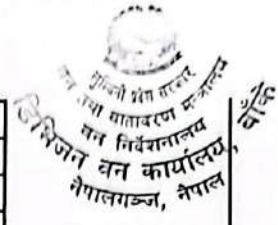 लुम्बिनी प्रदेश सरकार
वन तथा वातावरण मन्त्रालय
वन निर्देशनालय
डिभिजन वन कार्यालय, बाँके
नेपालगञ्ज, नेपाल